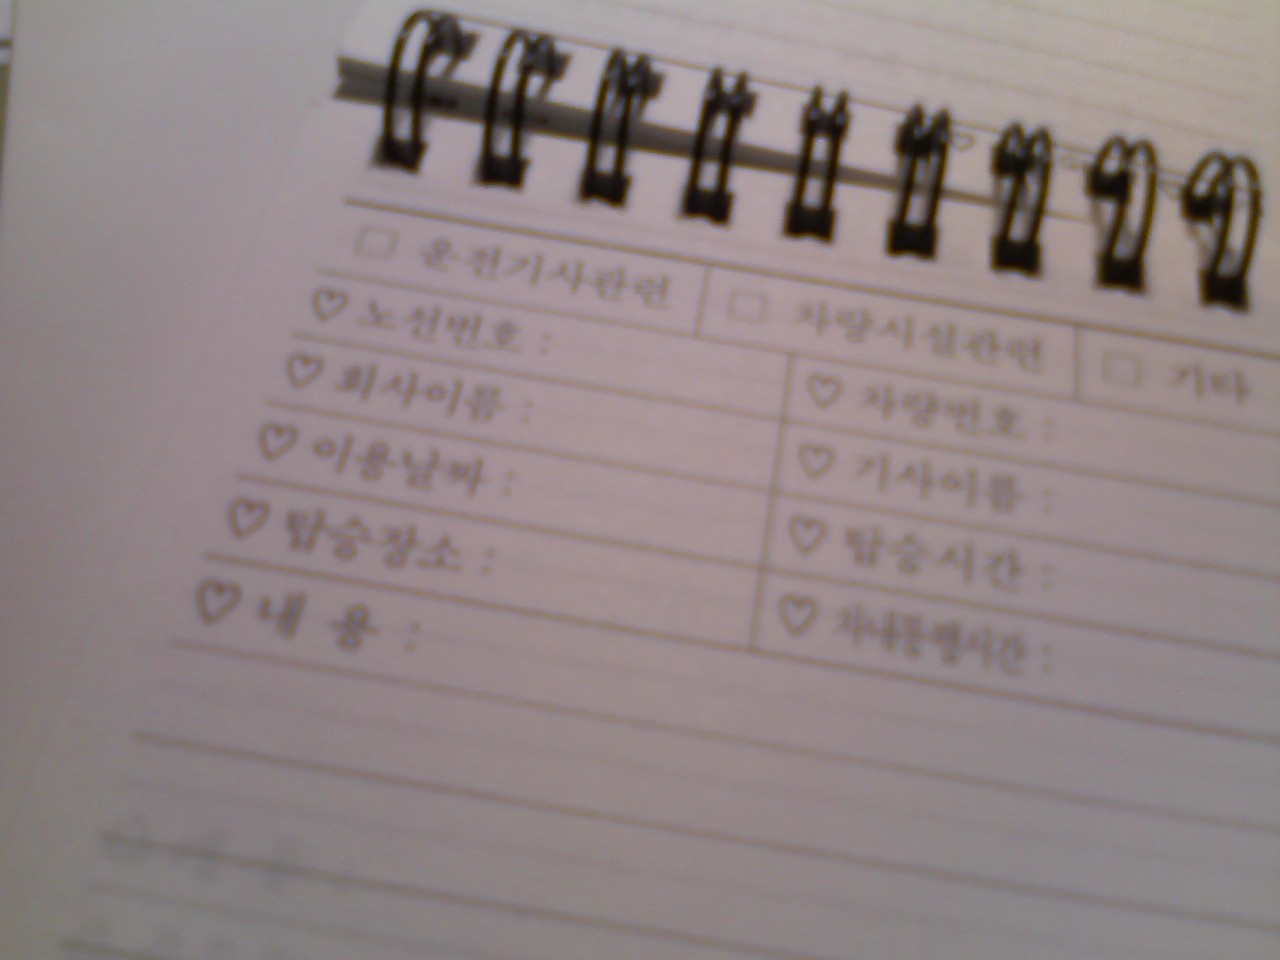 □ 운전기사관련 □ 차량시설관련 □ 기타
♡ 노선번호 :
♡ 회사이름 : ♡ 차량번호 :
♡ 이용날짜 : ♡ 기사이름 :
♡ 탑승장소 : ♡ 탑승시간 :
♡ 내 용 : ♡ 차내통행시간 :